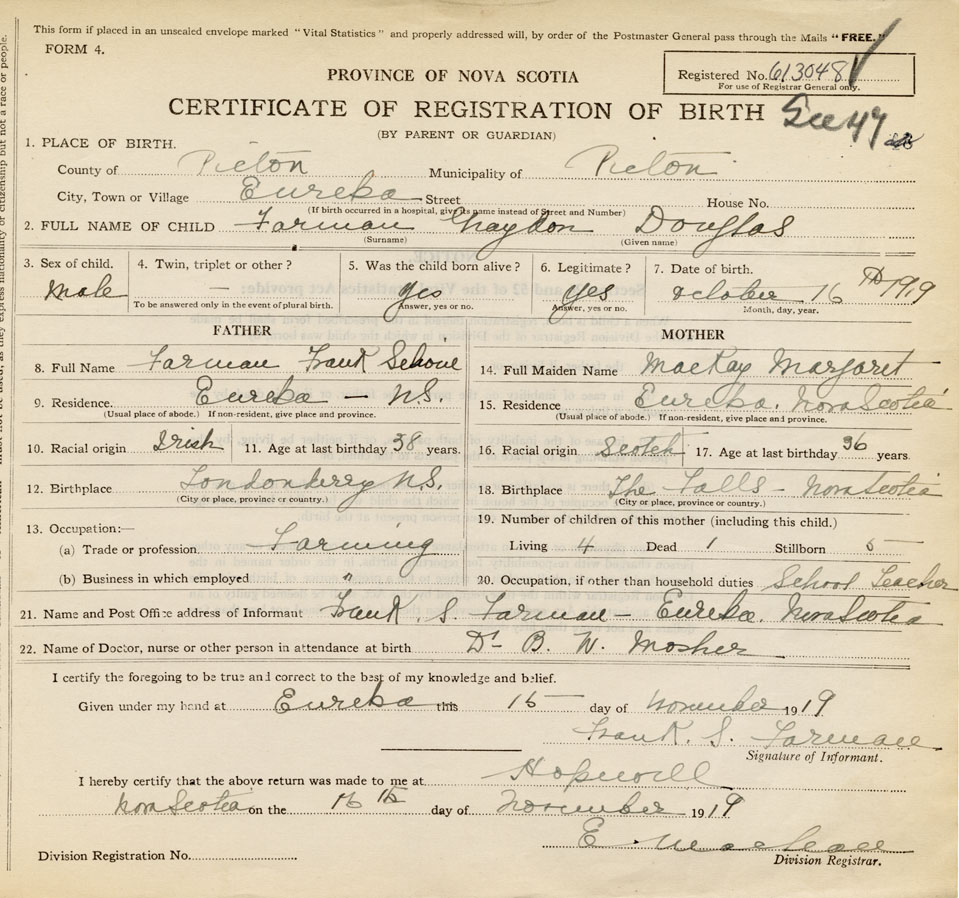 This form if placed in an unsealed envelope marked "Vital Statistics" and properly addressed will, by order of the Postmaster General pass through the Mails "FREE."
FORM 4.
Registered No. 613048
For use of Registrar General only.
PROVINCE OF NOVA SCOTIA
CERTIFICATE OF REGISTRATION OF BIRTH
(BY PARENT OR GUARDIAN)
1. PLACE OF BIRTH.
County of Picton Municipality of Picton
City, Town or Village Eureka Street House No.
(If birth occurred in a hospital, give its name instead of Street and Number)
2. FULL NAME OF CHILD Farman Graydon Douglas
(Surname) (Given name)
3. Sex of child. 4. Twin, triplet or other? 5. Was the child born alive? 6. Legitimate? 7. Date of birth.
Male — yes yes October 16 AD 1919
To be answered only in the event of plural birth. Answer, yes or no. Answer, yes or no. Month, day, year.
FATHER
8. Full Name Farman Frank
9. Residence. Eureka — N.S.
(Usual place of abode.) If non-resident, give place and province.
10. Racial origin Irish 11. Age at last birthday 38 years.
12. Birthplace Londonderry N.S.
(City or place, province or country.)
13. Occupation:—
(a) Trade or profession Farming
(b) Business in which employed "
MOTHER
14. Full Maiden Name MacKay Margaret
15. Residence Eureka. Nova Scotia
(Usual place of abode.) If non-resident, give place and province.
16. Racial origin Scotch 17. Age at last birthday 36 years.
18. Birthplace The Falls - Nova Scotia
(City or place, province or country.)
19. Number of children of this mother (including this child.)
Living 4 Dead 1 Stillborn
20. Occupation, if other than household duties School Teacher
21. Name and Post Office address of Informant Frank. S. Farman — Eureka. Nova Scotia
22. Name of Doctor, nurse or other person in attendance at birth Dr B. W. Mosher
I certify the foregoing to be true and correct to the best of my knowledge and belief.
Given under my hand at Eureka this 15 day of November 1919
Frank. S. Farman
Signature of Informant.
I hereby certify that the above return was made to me at Hopewell
Nova Scotia on the 16th day of November 1919
E.
Division Registrar.
Division Registration No.